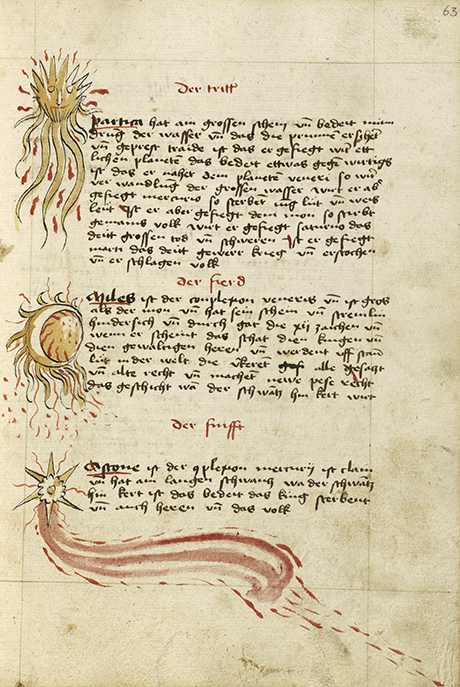 63
Der tritt
Partica hat am grossen schein vn̄ bedeit
drug der wasser vn̄ das die prunnē erschet
vn̄ geprest traide ist das er gefiegt wirt ett
lichen planetē das bedeit ettwas gegē wirtigs
ist das er nahet dem planetē veneri so wirt
ver wandlūg der grossen wasser wirt er
gefiegt mercurio so sterbet iūg lüt vn̄ weis
leüt Ist er aber gefiegt dem mon so sterbt
gemains volk wirt er gefiegt saturno das
deit grossen tod vn̄ schweren Ist er gefiegt
marti das deit gewerr krieg vn̄ erstochen
vn̄ er schlagen volk
Der fierd
Miles ist der conplexion veneris vn̄ ist gros
als der mon vn̄ hat sein schein vn̄ stremlin
hindersich vn̄ durch gat die xij zaichen vn̄
wenn er scheint das schat dien kingen vn̄
dien gewaltigen heren vn̄ werdent vff stan
lüt in der welt die vkeren alle gesatzt
vn̄ alte recht vn̄ machent newe pese recht
das geschicht wā der schwātz hin kert wirt
Der fünfft
Astone ist der 9plexion mercurij ist clain
vn̄ hat am langen schwantz wa der schwātz
hin kert ist das bedeit das king sterbent
vn̄ auch heren vn̄ das volk